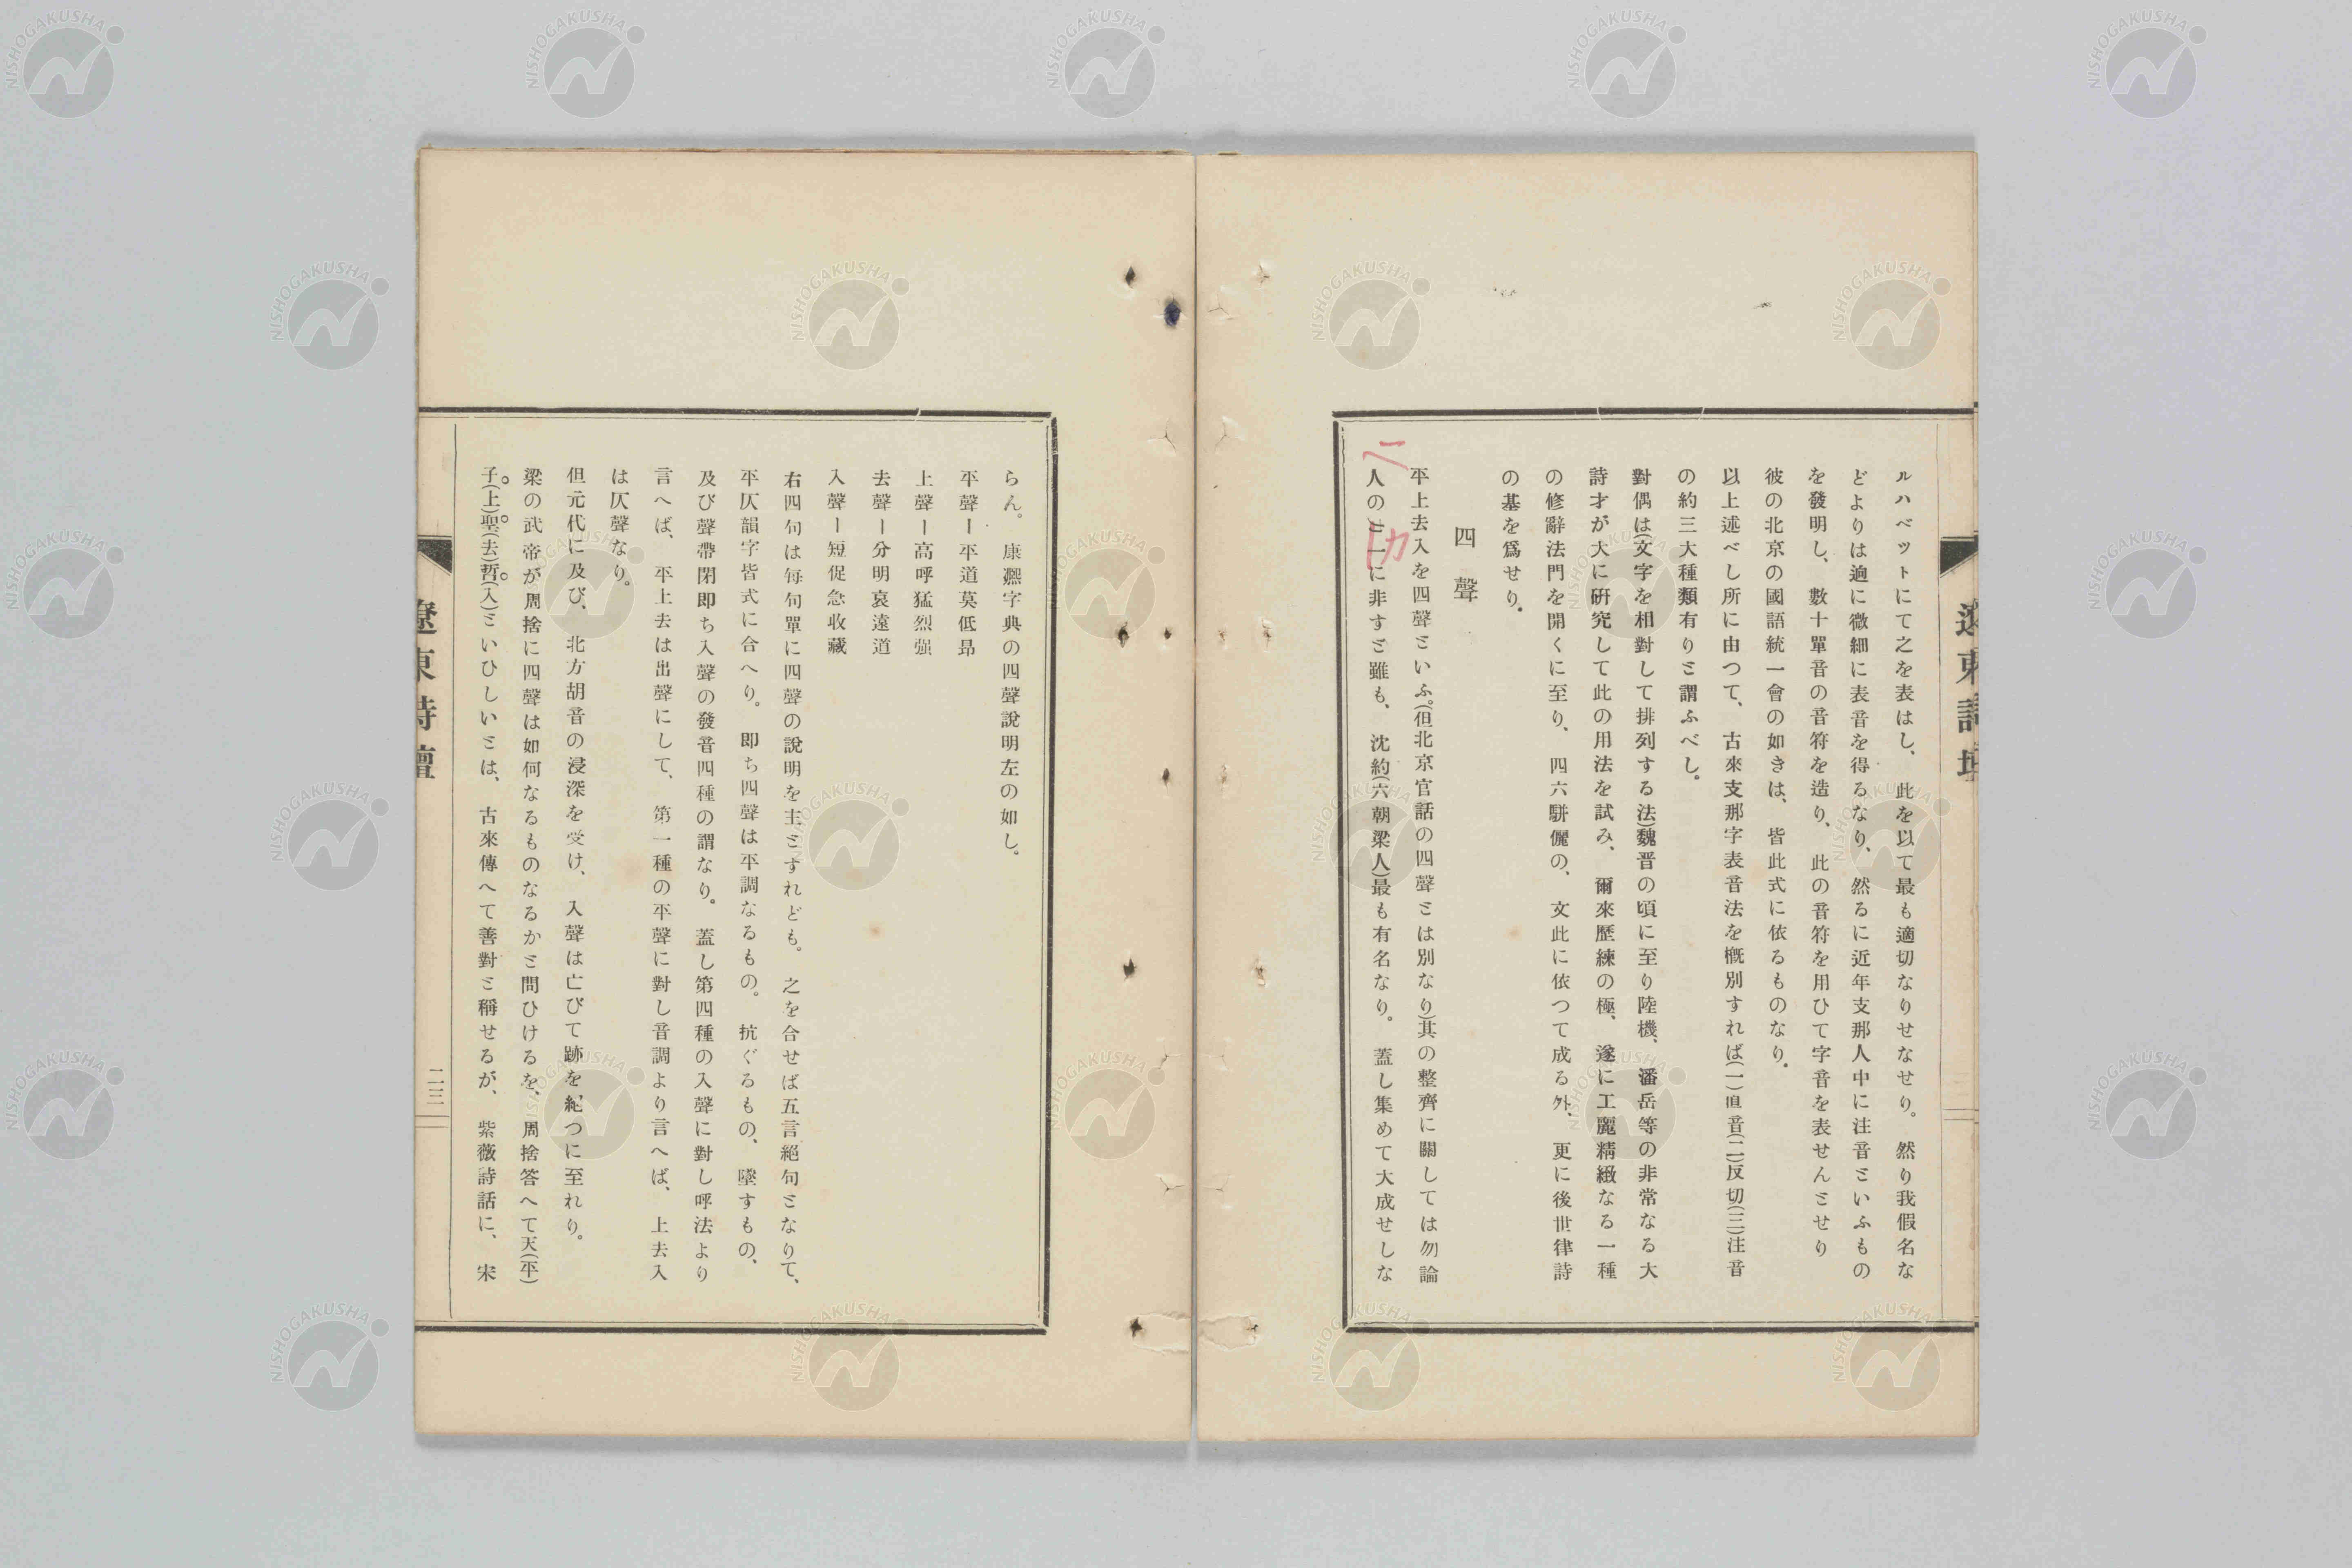 ルハベツトにて之を表はし、此を以て最も適切なりせなせり。然り我假名な
どよりは逈に微細に表音を得るなり、然るに近年支那人中に注音といふもの
を發明し、數十單音の音符を造り、此の音符を用ひて字音を表せんとせり
彼の北京の國語統一會の如きは、皆此式に依るものなり。
以上述べし所に由つて、古來支那字表音法を概別すれば(一)直音(二)反切(三)注音
の約三大種類有りと謂ふべし。
對偶は(文字を相對して排列する法)魏晋の頃に至り陸機、潘岳等の非常なる大
詩才が大に研究して此の用法を試み、爾來歷練の極、遂に工麗精緻なる一種
の修辭法門を開くに至り、四六駢儷の、文此に依つて成る外、更に後世律詩
の基を爲せり。
四聲
平上去入を四聲といふ。(但北京官話の四聲とは別なり)其の整齊に關しては勿論
一人の力に非すと雖も、沈約(六朝梁人)最も有名なり。蓋し集めて大成せしな
遼東詩壇
らん。康凞字典の四聲說明左の如し。
平聲ー平道莫低昻
上聲ー高呼猛烈强
去聲ー分明哀遠道
入聲ー短促急收藏
右四句は每句單に四聲の說明を主とすれども。之を合せば五言絕句となりて、
平仄韻字皆式に合へり。即ち四聲は平調なるもの。抗ぐるもの、墜すもの、
及び聲帶閉即ち入聲の發音四種の謂なり。蓋し第四種の入聲に對し呼法より
言へば、平上去は出聲にして、第一種の平聲に對し音調より言へば、上去入
は仄聲なり。
但元代に及び、北方胡音の浸深を受け、入聲は亡びて跡を絕つに至れり。
梁の武帝が周捨に四聲は如何なるものなるかと問ひけるを、周捨答へて天(平)
子(上)聖(去)哲(入)といひしいとは、古來傳へて善對と稱せるが、紫薇詩話に、宋
遼東詩壇
二三
NISHOGAKUSHA